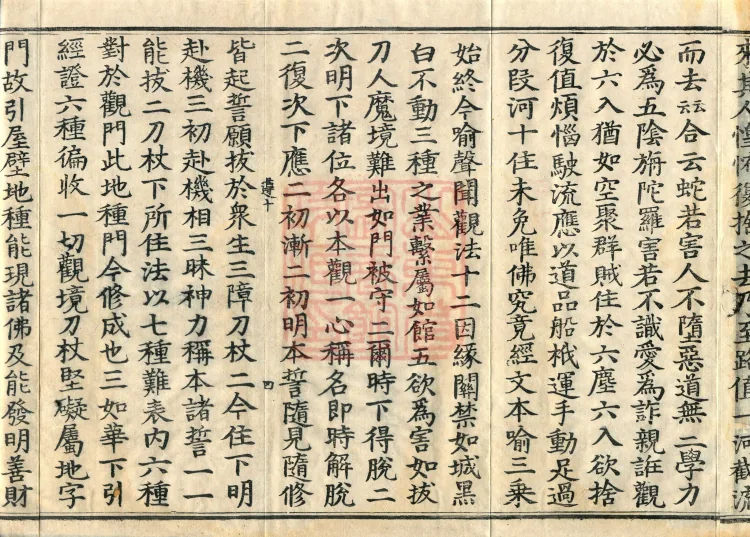 其人惶怖復捨之去乃至路值一河截流
而去云云合云蛇若害人不墮惡道無三學力
必為五陰旃陀羅害若不識愛為詐親誑觀
於六入猶如空聚群賊住於六塵六入欲捨
復值煩惱駛流應以道品船栰運手動足過
分段河十住未免唯佛究竟經文本喻三乘
始終今喻聲聞觀法十二因緣關禁如城黑
白不動三種之業繫屬如館五欲為害如拔
刀人魔境難出如門被守二爾時下得脫二
次明下諸位各以本觀一心稱名即時解脫
二復次下應二初漸二初明本誓隨見隨修
遵十 四
皆起誓願拔於眾生三障刀杖二今住下明
赴機三初赴機相三昧神力稱本諸誓一一
能拔二刀杖下所住法以七種難表內六種
對於觀門此地種門今修成也三如華下引
經證六種徧收一切觀境刀杖堅礙屬地字
門故引屋壁地種能現諸佛及能發明善財